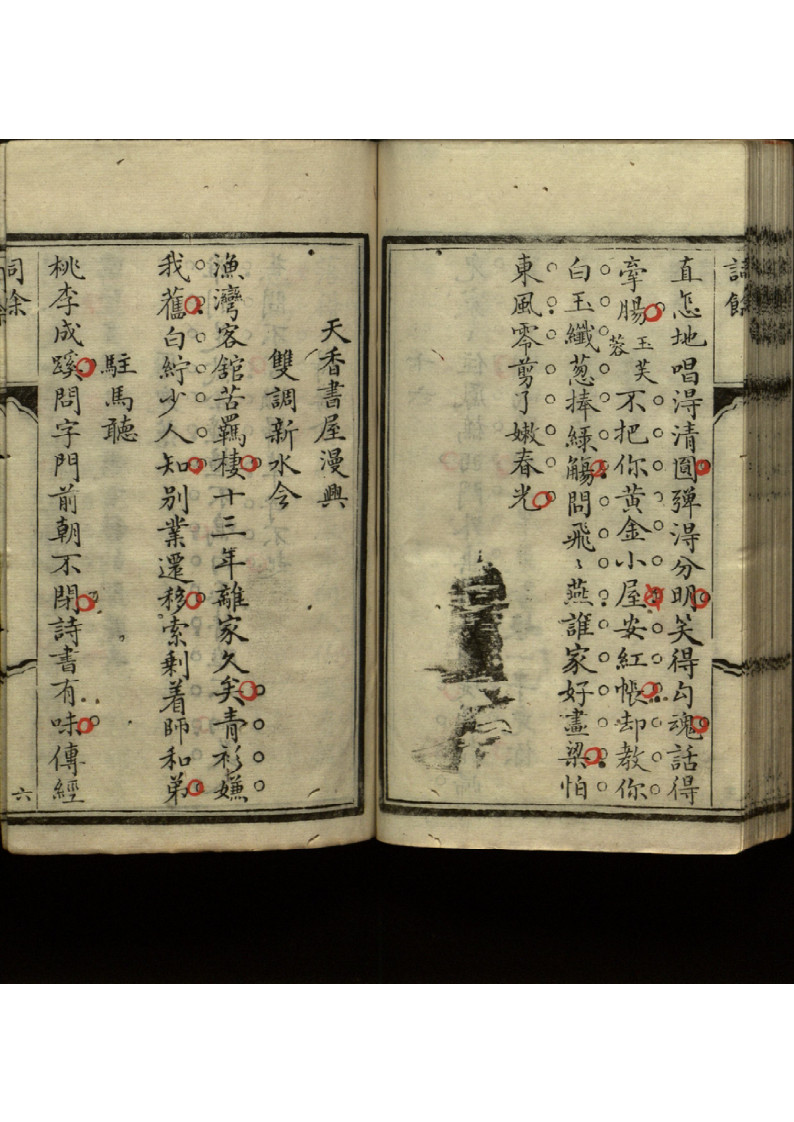 直怎地唱淂清圓弾淂分明笑得勾魂話得
牽腸
玉芙
蓉
不把你黄金小屋安紅帳却教你
白玉纖葱捧緑觴問飛〻燕誰家好畫梁怕
東風零剪了嫩春光
天香書屋漫興
雙調新水令
漁灣客舘苦羈棲十三年離家久矣青衫嫌
我舊白紵少人知别業還移索剩着師和弟
駐馬聽
桃李成蹊問字門前朝不閉詩書有味傳經
六